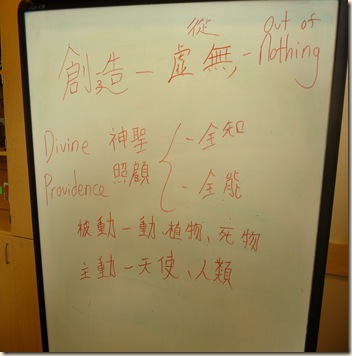 從 Out of
創造 — 虛無, - Nothing
Divine 神聖 - 全知
Providence 照顧 - 全能
被動 — 動、植物、死物
主動 — 天使、人類